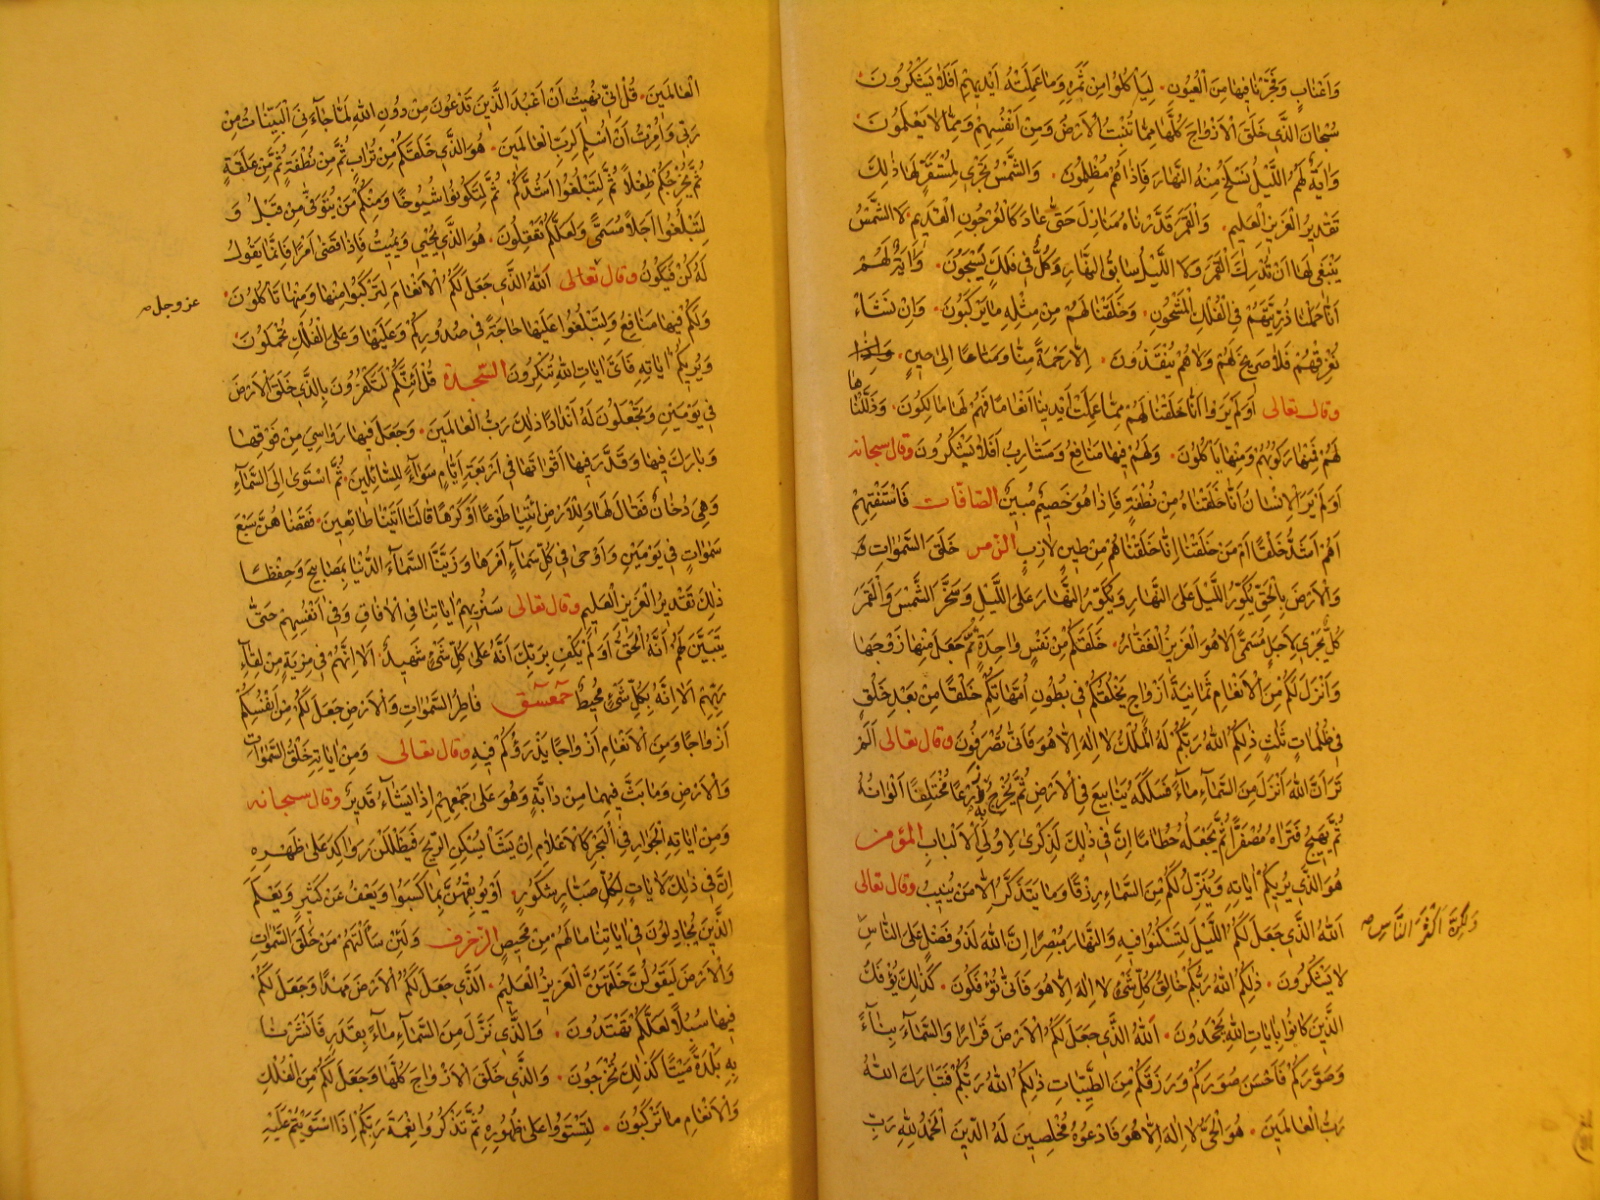 وَأَعْنَابٍ وَفَجَّرْنَا فِيهَا مِنَ الْعُيُونِ. لِيَأْكُلُوا مِنْ ثَمَرِهِ وَمَا عَمِلَتْهُ أَيْدِيهِمْ أَفَلَا يَشْكُرُونَ.
سُبْحَانَ الَّذِي خَلَقَ الْأَزْوَاجَ كُلَّهَا مِمَّا تُنْبِتُ الْأَرْضُ وَمِنْ أَنْفُسِهِمْ وَمِمَّا لَا يَعْلَمُونَ
وَآيَةٌ لَهُمُ اللَّيْلُ نَسْلَخُ مِنْهُ النَّهَارَ فَإِذَا هُمْ مُظْلِمُونَ. وَالشَّمْسُ تَجْرِي لِمُسْتَقَرٍّ لَهَا ذٰلِكَ
تَقْدِيرُ الْعَزِيزِ الْعَلِيمِ. وَالْقَمَرَ قَدَّرْنَاهُ مَنَازِلَ حَتَّى عَادَ كَالْعُرْجُونِ الْقَدِيمِ. لَا الشَّمْسُ
يَنْبَغِي لَهَا أَنْ تُدْرِكَ الْقَمَرَ وَلَا اللَّيْلُ سَابِقُ النَّهَارِ وَكُلٌّ فِي فَلَكٍ يَسْبَحُونَ. وَآيَةٌ لَهُمْ
أَنَّا حَمَلْنَا ذُرِّيَّتَهُمْ فِي الْفُلْكِ الْمَشْحُونِ. وَخَلَقْنَا لَهُمْ مِنْ مِثْلِهِ مَا يَرْكَبُونَ. وَإِنْ نَشَاءْ
نُغْرِقْهُمْ فَلَا صَرِيخَ لَهُمْ وَلَا هُمْ يُنْقَذُونَ. إِلَّا رَحْمَةً مِنَّا وَمَتَاعًا إِلَى حِينٍ. وَإِذَا
وقال تعالى أَوَلَمْ يَرَوْا أَنَّا خَلَقْنَا لَهُمْ مِمَّا عَمِلَتْ أَيْدِينَا أَنْعَامًا فَهُمْ لَهَا مَالِكُونَ. وَذَلَّلْنَاهَا
لَهُمْ فَمِنْهَا رَكُوبُهُمْ وَمِنْهَا يَأْكُلُونَ. وَلَهُمْ فِيهَا مَنَافِعُ وَمَشَارِبُ أَفَلَا يَشْكُرُونَ وقال سبحانه
أَوَلَمْ يَرَ الْإِنْسَانُ أَنَّا خَلَقْنَاهُ مِنْ نُطْفَةٍ فَإِذَا هُوَ خَصِيمٌ مُبِينٌ الصافات فَاسْتَفْتِهِمْ
أَهُمْ أَشَدُّ خَلْقًا أَمْ مَنْ خَلَقْنَا إِنَّا خَلَقْنَاهُمْ مِنْ طِينٍ لَازِبٍ الزمر خَلَقَ السَّمٰوَاتِ وَ
وَالْأَرْضَ بِالْحَقِّ يُكَوِّرُ اللَّيْلَ عَلَى النَّهَارِ وَيُكَوِّرُ النَّهَارَ عَلَى اللَّيْلِ وَسَخَّرَ الشَّمْسَ وَالْقَمَرَ
كُلٌّ يَجْرِي لِأَجَلٍ مُسَمًّى أَلَا هُوَ الْعَزِيزُ الْغَفَّارُ. خَلَقَكُمْ مِنْ نَفْسٍ وَاحِدَةٍ ثُمَّ جَعَلَ مِنْهَا زَوْجَهَا
وَأَنْزَلَ لَكُمْ مِنَ الْأَنْعَامِ ثَمَانِيَةَ أَزْوَاجٍ يَخْلُقُكُمْ فِي بُطُونِ أُمَّهَاتِكُمْ خَلْقًا مِنْ بَعْدِ خَلْقٍ
فِي ظُلُمَاتٍ ثَلٰثٍ ذٰلِكُمُ اللهُ رَبُّكُمْ لَهُ الْمُلْكُ لَا إِلٰهَ إِلَّا هُوَ فَأَنَّى تُصْرَفُونَ وقال تعالى أَلَمْ
تَرَ أَنَّ اللهَ أَنْزَلَ مِنَ السَّمَاءِ مَاءً فَسَلَكَهُ يَنَابِيعَ فِي الْأَرْضِ ثُمَّ يُخْرِجُ بِهِ زَرْعًا مُخْتَلِفًا أَلْوَانُهُ
ثُمَّ يَهِيجُ فَتَرَاهُ مُصْفَرًّا ثُمَّ يَجْعَلُهُ حُطَامًا إِنَّ فِي ذٰلِكَ لَذِكْرَى لِأُولِي الْأَلْبَابِ المؤمن
هُوَ الَّذِي يُرِيكُمْ آيَاتِهِ وَيُنَزِّلُ لَكُمْ مِنَ السَّمَاءِ رِزْقًا وَمَا يَتَذَكَّرُ إِلَّا مَنْ يُنِيبُ وقال تعالى
اللهُ الَّذِي جَعَلَ لَكُمُ اللَّيْلَ لِتَسْكُنُوا فِيهِ وَالنَّهَارَ مُبْصِرًا إِنَّ اللهَ لَذُو فَضْلٍ عَلَى النَّاسِ
وَلٰكِنَّ أَكْثَرَ النَّاسِ
لَا يَشْكُرُونَ. ذٰلِكُمُ اللهُ رَبُّكُمْ خَالِقُ كُلِّ شَيْءٍ لَا إِلٰهَ إِلَّا هُوَ فَأَنَّى تُؤْفَكُونَ. كَذٰلِكَ يُؤْفَكُ
الَّذِينَ كَانُوا بِآيَاتِ اللهِ يَجْحَدُونَ. اَللهُ الَّذِي جَعَلَ لَكُمُ الْأَرْضَ قَرَارًا وَالسَّمَاءَ بِنَاءً
وَصَوَّرَكُمْ فَأَحْسَنَ صُوَرَكُمْ وَرَزَقَكُمْ مِنَ الطَّيِّبَاتِ ذٰلِكُمُ اللهُ رَبُّكُمْ فَتَبَارَكَ اللهُ
رَبُّ الْعَالَمِينَ. هُوَ الْحَيُّ لَا إِلٰهَ إِلَّا هُوَ فَادْعُوهُ مُخْلِصِينَ لَهُ الدِّينَ الْحَمْدُ لِلّٰهِ رَبِّ
الْعَالَمِينَ. قُلْ إِنِّي نُهِيتُ أَنْ أَعْبُدَ الَّذِينَ تَدْعُونَ مِنْ دُونِ اللهِ لَمَّا جَاءَنِيَ الْبَيِّنَاتُ مِنْ
رَبِّي وَأُمِرْتُ أَنْ أُسْلِمَ لِرَبِّ الْعَالَمِينَ. هُوَ الَّذِي خَلَقَكُمْ مِنْ تُرَابٍ ثُمَّ مِنْ نُطْفَةٍ ثُمَّ مِنْ عَلَقَةٍ
ثُمَّ يُخْرِجُكُمْ طِفْلًا ثُمَّ لِتَبْلُغُوا أَشُدَّكُمْ ثُمَّ لِتَكُونُوا شُيُوخًا وَمِنْكُمْ مَنْ يُتَوَفَّى مِنْ قَبْلُ وَ
لِتَبْلُغُوا أَجَلًا مُسَمًّى وَلَعَلَّكُمْ تَعْقِلُونَ. هُوَ الَّذِي يُحْيِي وَيُمِيتُ فَإِذَا قَضَى أَمْرًا فَإِنَّمَا يَقُولُ
لَهُ كُنْ فَيَكُونُ وقال تعالى اَللهُ الَّذِي جَعَلَ لَكُمُ الْأَنْعَامَ لِتَرْكَبُوا مِنْهَا وَمِنْهَا تَأْكُلُونَ.
عز وجل
وَلَكُمْ فِيهَا مَنَافِعُ وَلِتَبْلُغُوا عَلَيْهَا حَاجَةً فِي صُدُورِكُمْ وَعَلَيْهَا وَعَلَى الْفُلْكِ تُحْمَلُونَ.
وَيُرِيكُمْ آيَاتِهِ فَأَيَّ آيَاتِ اللهِ تُنْكِرُونَ السجدة قُلْ أَئِنَّكُمْ لَتَكْفُرُونَ بِالَّذِي خَلَقَ الْأَرْضَ
فِي يَوْمَيْنِ وَتَجْعَلُونَ لَهُ أَنْدَادًا ذٰلِكَ رَبُّ الْعَالَمِينَ. وَجَعَلَ فِيهَا رَوَاسِيَ مِنْ فَوْقِهَا
وَبَارَكَ فِيهَا وَقَدَّرَ فِيهَا أَقْوَاتَهَا فِي أَرْبَعَةِ أَيَّامٍ سَوَاءً لِلسَّائِلِينَ. ثُمَّ اسْتَوَى إِلَى السَّمَاءِ
وَهِيَ دُخَانٌ فَقَالَ لَهَا وَلِلْأَرْضِ ائْتِيَا طَوْعًا أَوْ كَرْهًا قَالَتَا أَتَيْنَا طَائِعِينَ. فَقَضَاهُنَّ سَبْعَ
سَمٰوَاتٍ فِي يَوْمَيْنِ وَأَوْحَى فِي كُلِّ سَمَاءٍ أَمْرَهَا وَزَيَّنَّا السَّمَاءَ الدُّنْيَا بِمَصَابِيحَ وَحِفْظًا
ذٰلِكَ تَقْدِيرُ الْعَزِيزِ الْعَلِيمِ وقال تعالى سَنُرِيهِمْ آيَاتِنَا فِي الْآفَاقِ وَفِي أَنْفُسِهِمْ حَتَّى
يَتَبَيَّنَ لَهُمْ أَنَّهُ الْحَقُّ أَوَلَمْ يَكْفِ بِرَبِّكَ أَنَّهُ عَلَى كُلِّ شَيْءٍ شَهِيدٌ. أَلَا إِنَّهُمْ فِي مِرْيَةٍ مِنْ لِقَاءِ
رَبِّهِمْ أَلَا إِنَّهُ بِكُلِّ شَيْءٍ مُحِيطٌ حمعسق فَاطِرُ السَّمٰوَاتِ وَالْأَرْضِ جَعَلَ لَكُمْ مِنْ أَنْفُسِكُمْ
أَزْوَاجًا وَمِنَ الْأَنْعَامِ أَزْوَاجًا يَذْرَؤُكُمْ فِيهِ وقال تعالى وَمِنْ آيَاتِهِ خَلْقُ السَّمٰوَاتِ
وَالْأَرْضِ وَمَا بَثَّ فِيهِمَا مِنْ دَابَّةٍ وَهُوَ عَلَى جَمْعِهِمْ إِذَا يَشَاءُ قَدِيرٌ وقال سبحانه
وَمِنْ آيَاتِهِ الْجَوَارِ فِي الْبَحْرِ كَالْأَعْلَامِ إِنْ يَشَأْ يُسْكِنِ الرِّيحَ فَيَظْلَلْنَ رَوَاكِدَ عَلَى ظَهْرِهِ
إِنَّ فِي ذٰلِكَ لَآيَاتٍ لِكُلِّ صَبَّارٍ شَكُورٍ. أَوْ يُوبِقْهُنَّ بِمَا كَسَبُوا وَيَعْفُ عَنْ كَثِيرٍ وَيَعْلَمَ
الَّذِينَ يُجَادِلُونَ فِي آيَاتِنَا مَا لَهُمْ مِنْ مَحِيصٍ الزخرف وَلَئِنْ سَأَلْتَهُمْ مَنْ خَلَقَ السَّمٰوَاتِ
وَالْأَرْضَ لَيَقُولُنَّ خَلَقَهُنَّ الْعَزِيزُ الْعَلِيمُ. الَّذِي جَعَلَ لَكُمُ الْأَرْضَ مَهْدًا وَجَعَلَ لَكُمْ
فِيهَا سُبُلًا لَعَلَّكُمْ تَهْتَدُونَ. وَالَّذِي نَزَّلَ مِنَ السَّمَاءِ مَاءً بِقَدَرٍ فَأَنْشَرْنَا
بِهِ بَلْدَةً مَيْتًا كَذٰلِكَ تُخْرَجُونَ. وَالَّذِي خَلَقَ الْأَزْوَاجَ كُلَّهَا وَجَعَلَ لَكُمْ مِنَ الْفُلْكِ
وَالْأَنْعَامِ مَا تَرْكَبُونَ. لِتَسْتَوُوا عَلَى ظُهُورِهِ ثُمَّ تَذْكُرُوا نِعْمَةَ رَبِّكُمْ إِذَا اسْتَوَيْتُمْ عَلَيْهِ